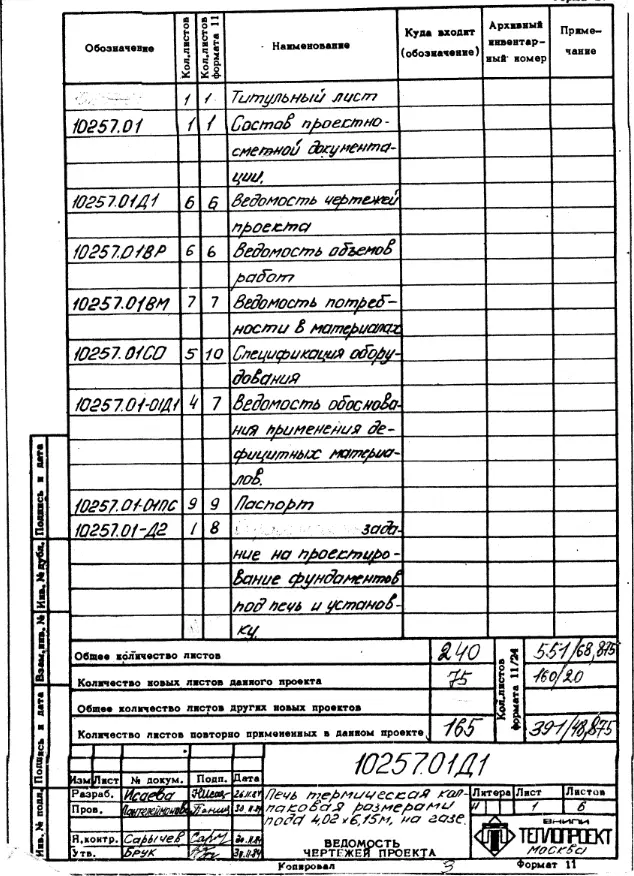 Обозначение Кол.листов Кол.листов формата 11 Наименование Куда входит (обозначение) Архивный инвентар- ный номер Приме- чание
1 1 Титульный лист
10257.01 1 1 Состав проектно-
сметной документа-
ции.
10257.01Д1 6 6 Ведомость чертежей
проекта
10257.01ВР 6 6 Ведомость объемов
работ
10257.01ВМ 7 7 Ведомость потреб-
ности в материалах
10257.01СО 5 10 Спецификация обору-
дования
10257.01-01Д1 4 7 Ведомость обоснова-
ния применения де-
фицитных материа-
лов.
10257.01-01ПС 9 9 Паспорт
10257.01-Д2 1 8 зада-
ние на проектиро-
вание фундаментов
под печь и установ-
ку.
Общее количество листов 240 Кол.листов формата 11/24 551/68,875
Количество новых листов данного проекта 75 160/20
Общее количество листов других новых проектов
Количество листов повторно примененных в данном проекте 165 391/48,875
10257.01Д1
Изм Лист № докум. Подп. Дата
Разраб. Исаева 26.11.84
Пров. Пантелеймонова
Н.контр. Сарычев
Утв. Брук 30.11.84
Печь термическая кол-
паковая размерами
пода 4,02 х 6,15м, на газе.
ВЕДОМОСТЬ
ЧЕРТЕЖЕЙ ПРОЕКТА
Литера Лист Листов
1 6
ВНИПИ
ТЕПЛОПРОЕКТ
Москва
Копировал Формат 11
Инв. № подл. Подпись и дата Взам.инв. № Инв. № дубл. Подпись и дата